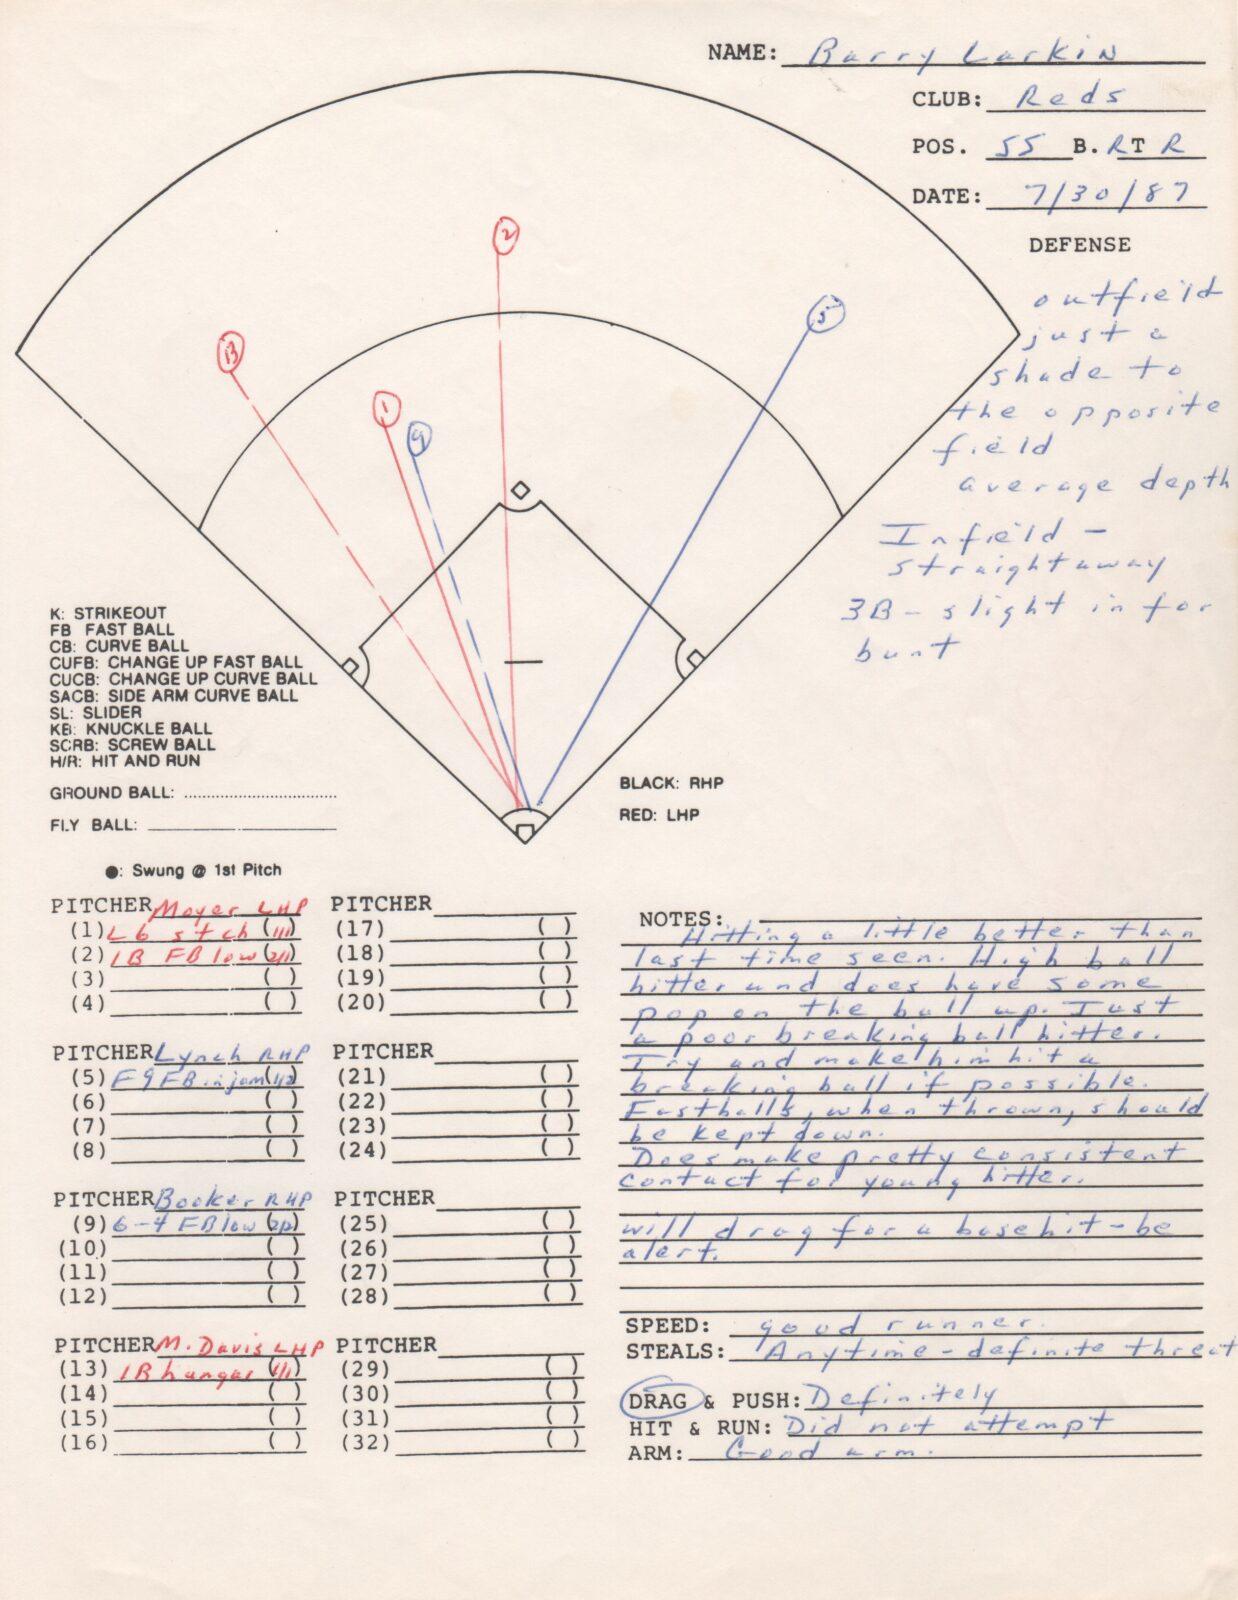 NAME: Barry Larkin
CLUB: Reds
POS. SS B. R T R
DATE: 7/30/87
DEFENSE
outfield
just a
shade to
the opposite
field
average depth
Infield -
straightaway
3B - slight in for
bunt
2
5
13
1
9
K: STRIKEOUT
FB FAST BALL
CB: CURVE BALL
CUFB: CHANGE UP FAST BALL
CUCB: CHANGE UP CURVE BALL
SACB: SIDE ARM CURVE BALL
SL: SLIDER
KB: KNUCKLE BALL
SCRB: SCREW BALL
H/R: HIT AND RUN
GROUND BALL:
FLY BALL:
BLACK: RHP
RED: LHP
●: Swung @ 1st Pitch
PITCHER Moyer LHP
(1) L6 st ch (1/1)
(2) 1B FB low (2/1)
(3) ( )
(4) ( )
PITCHER Lynch RHP
(5) F9 FB in jam (1/2)
(6) ( )
(7) ( )
(8) ( )
PITCHER Booker RHP
(9) 6-4 FB low (2p)
(10) ( )
(11) ( )
(12) ( )
PITCHER M. Davis LHP
(13) 1B hunger (1/1)
(14) ( )
(15) ( )
(16) ( )
PITCHER
(17) ( )
(18) ( )
(19) ( )
(20) ( )
PITCHER
(21) ( )
(22) ( )
(23) ( )
(24) ( )
PITCHER
(25) ( )
(26) ( )
(27) ( )
(28) ( )
PITCHER
(29) ( )
(30) ( )
(31) ( )
(32) ( )
NOTES:
Hitting a little better than
last time seen. High ball
hitter and does have some
pop on the ball up. Just
a poor breaking ball hitter.
Try and make him hit a
breaking ball if possible.
Fastballs, when thrown, should
be kept down.
Does make pretty consistent
contact for young hitter.
will drag for a base hit - be
alert.
SPEED: good runner.
STEALS: Anytime - definite threat
DRAG & PUSH: Definitely
HIT & RUN: Did not attempt
ARM: Good arm.